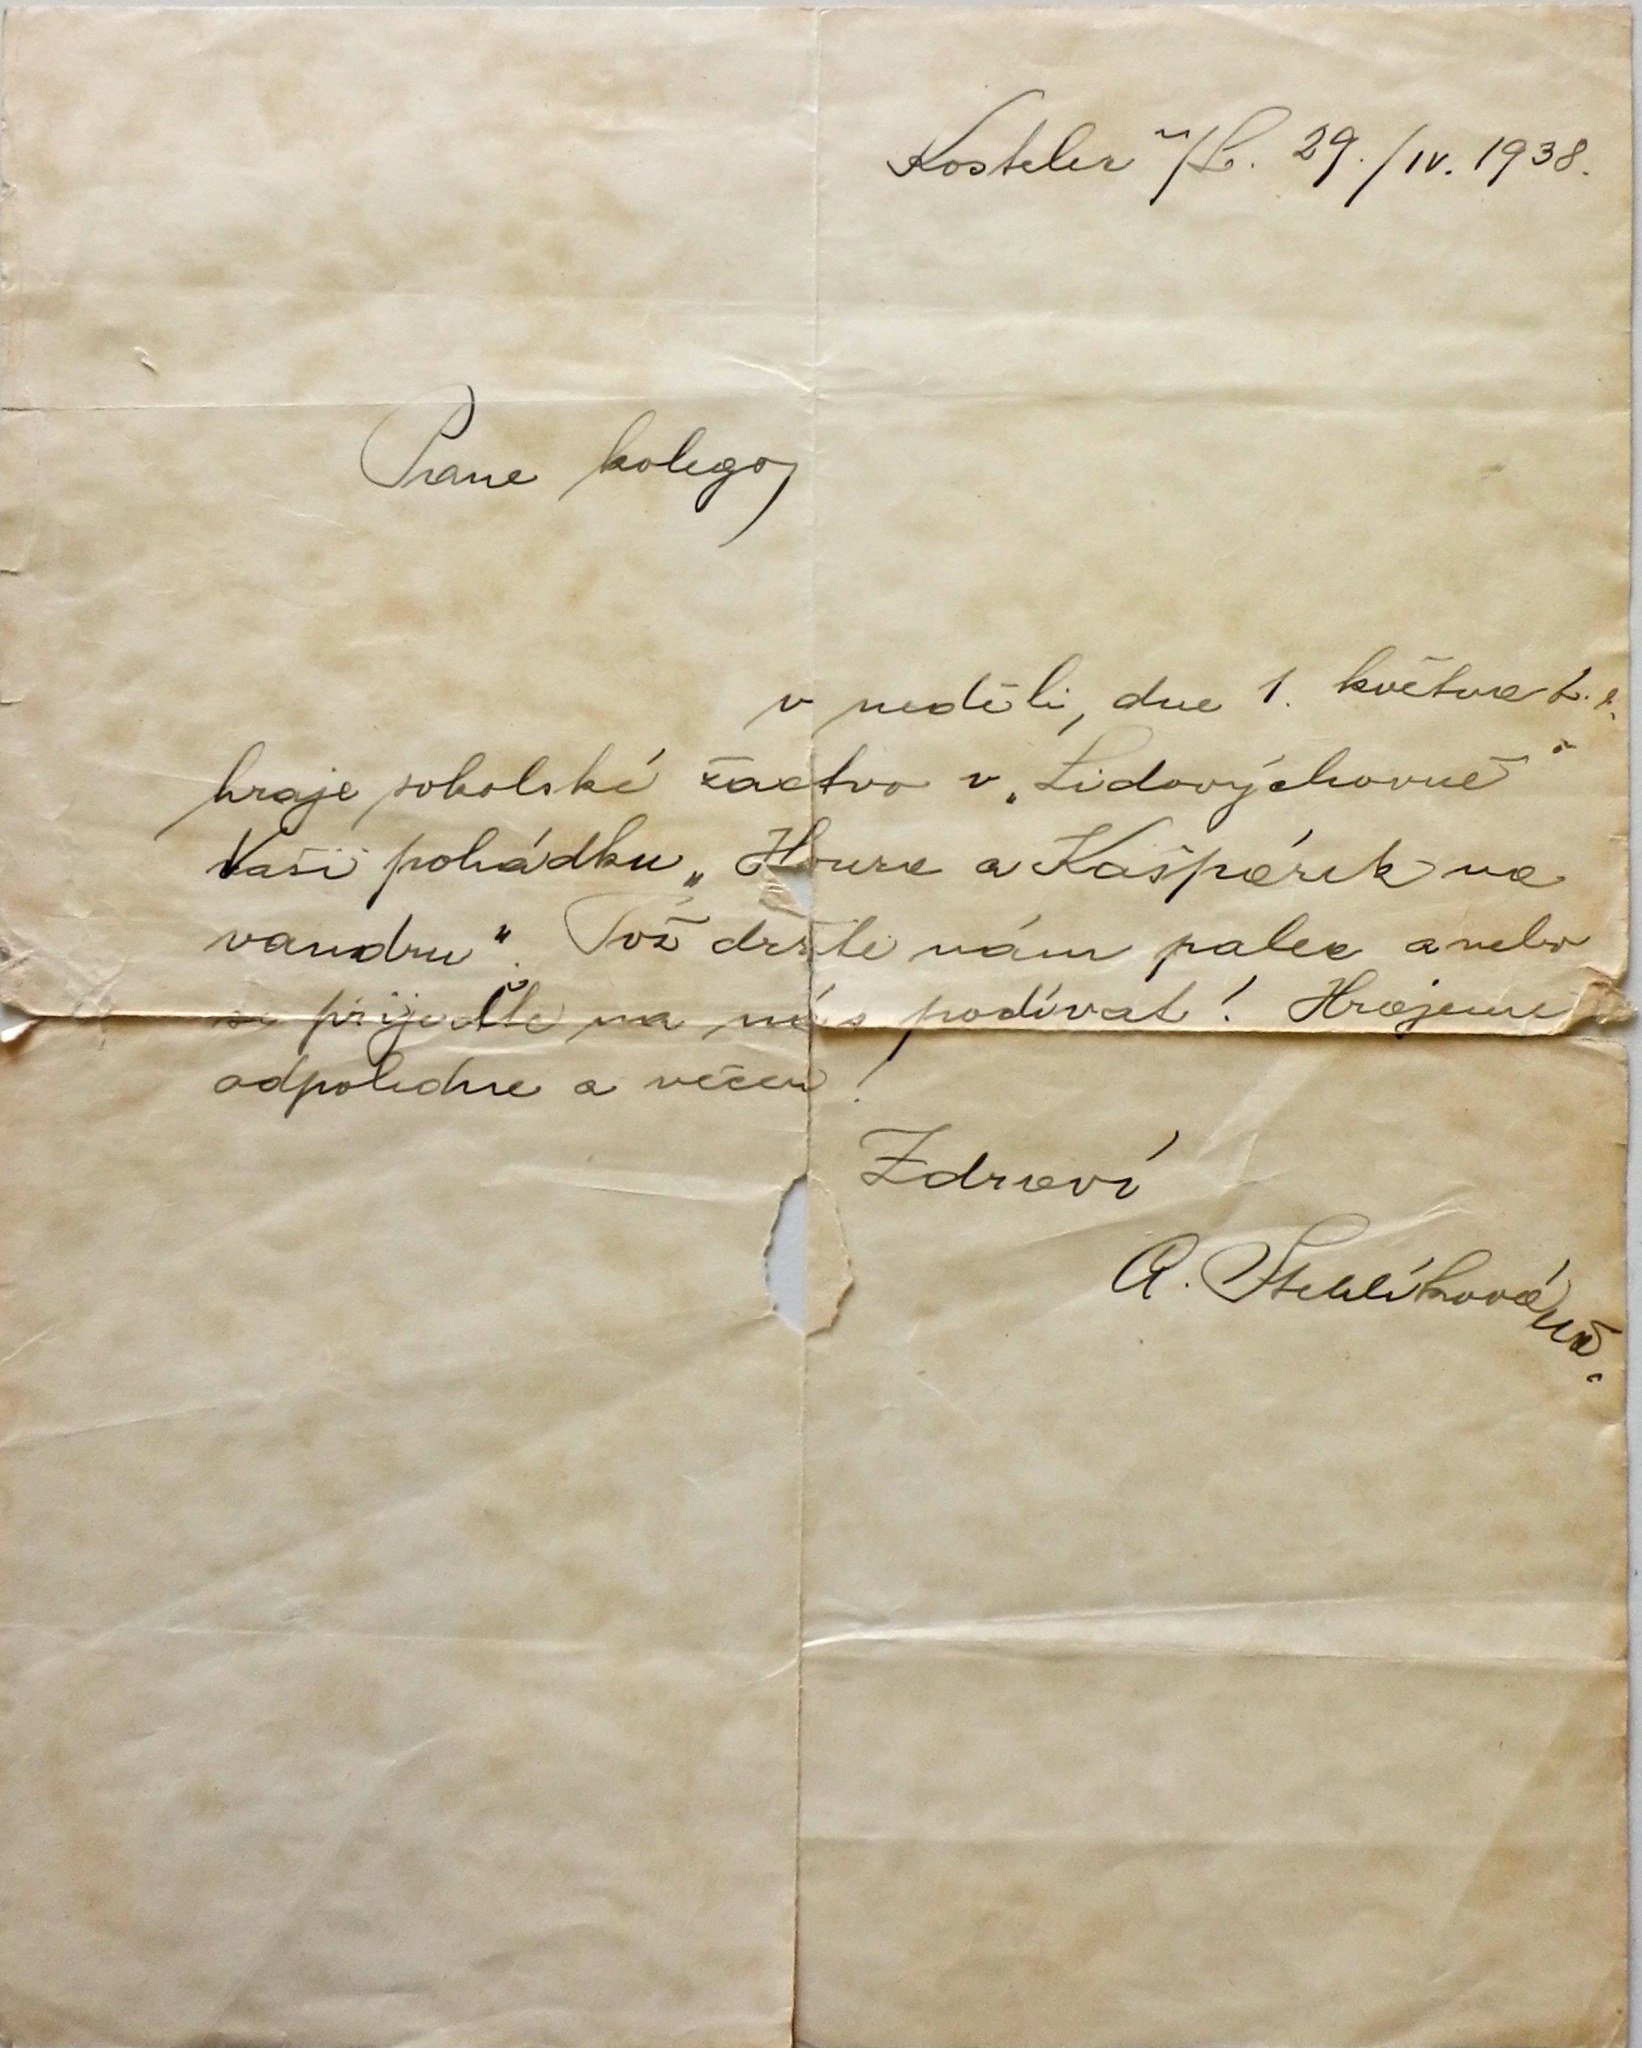 Kostelec n/L. 29./IV. 1938.
Pane kolego,
v neděli, dne 1. května t. r.
hraje sokolské žactvo v „Lidovýchovně“
Vaši pohádku „Honza a Kašpárek na
vandru“. Tož držte nám palec anebo
se přijeďte na nás podívat! Hrajeme
odpoledne a večer!
Zdraví
A. Stehlíková
uč.